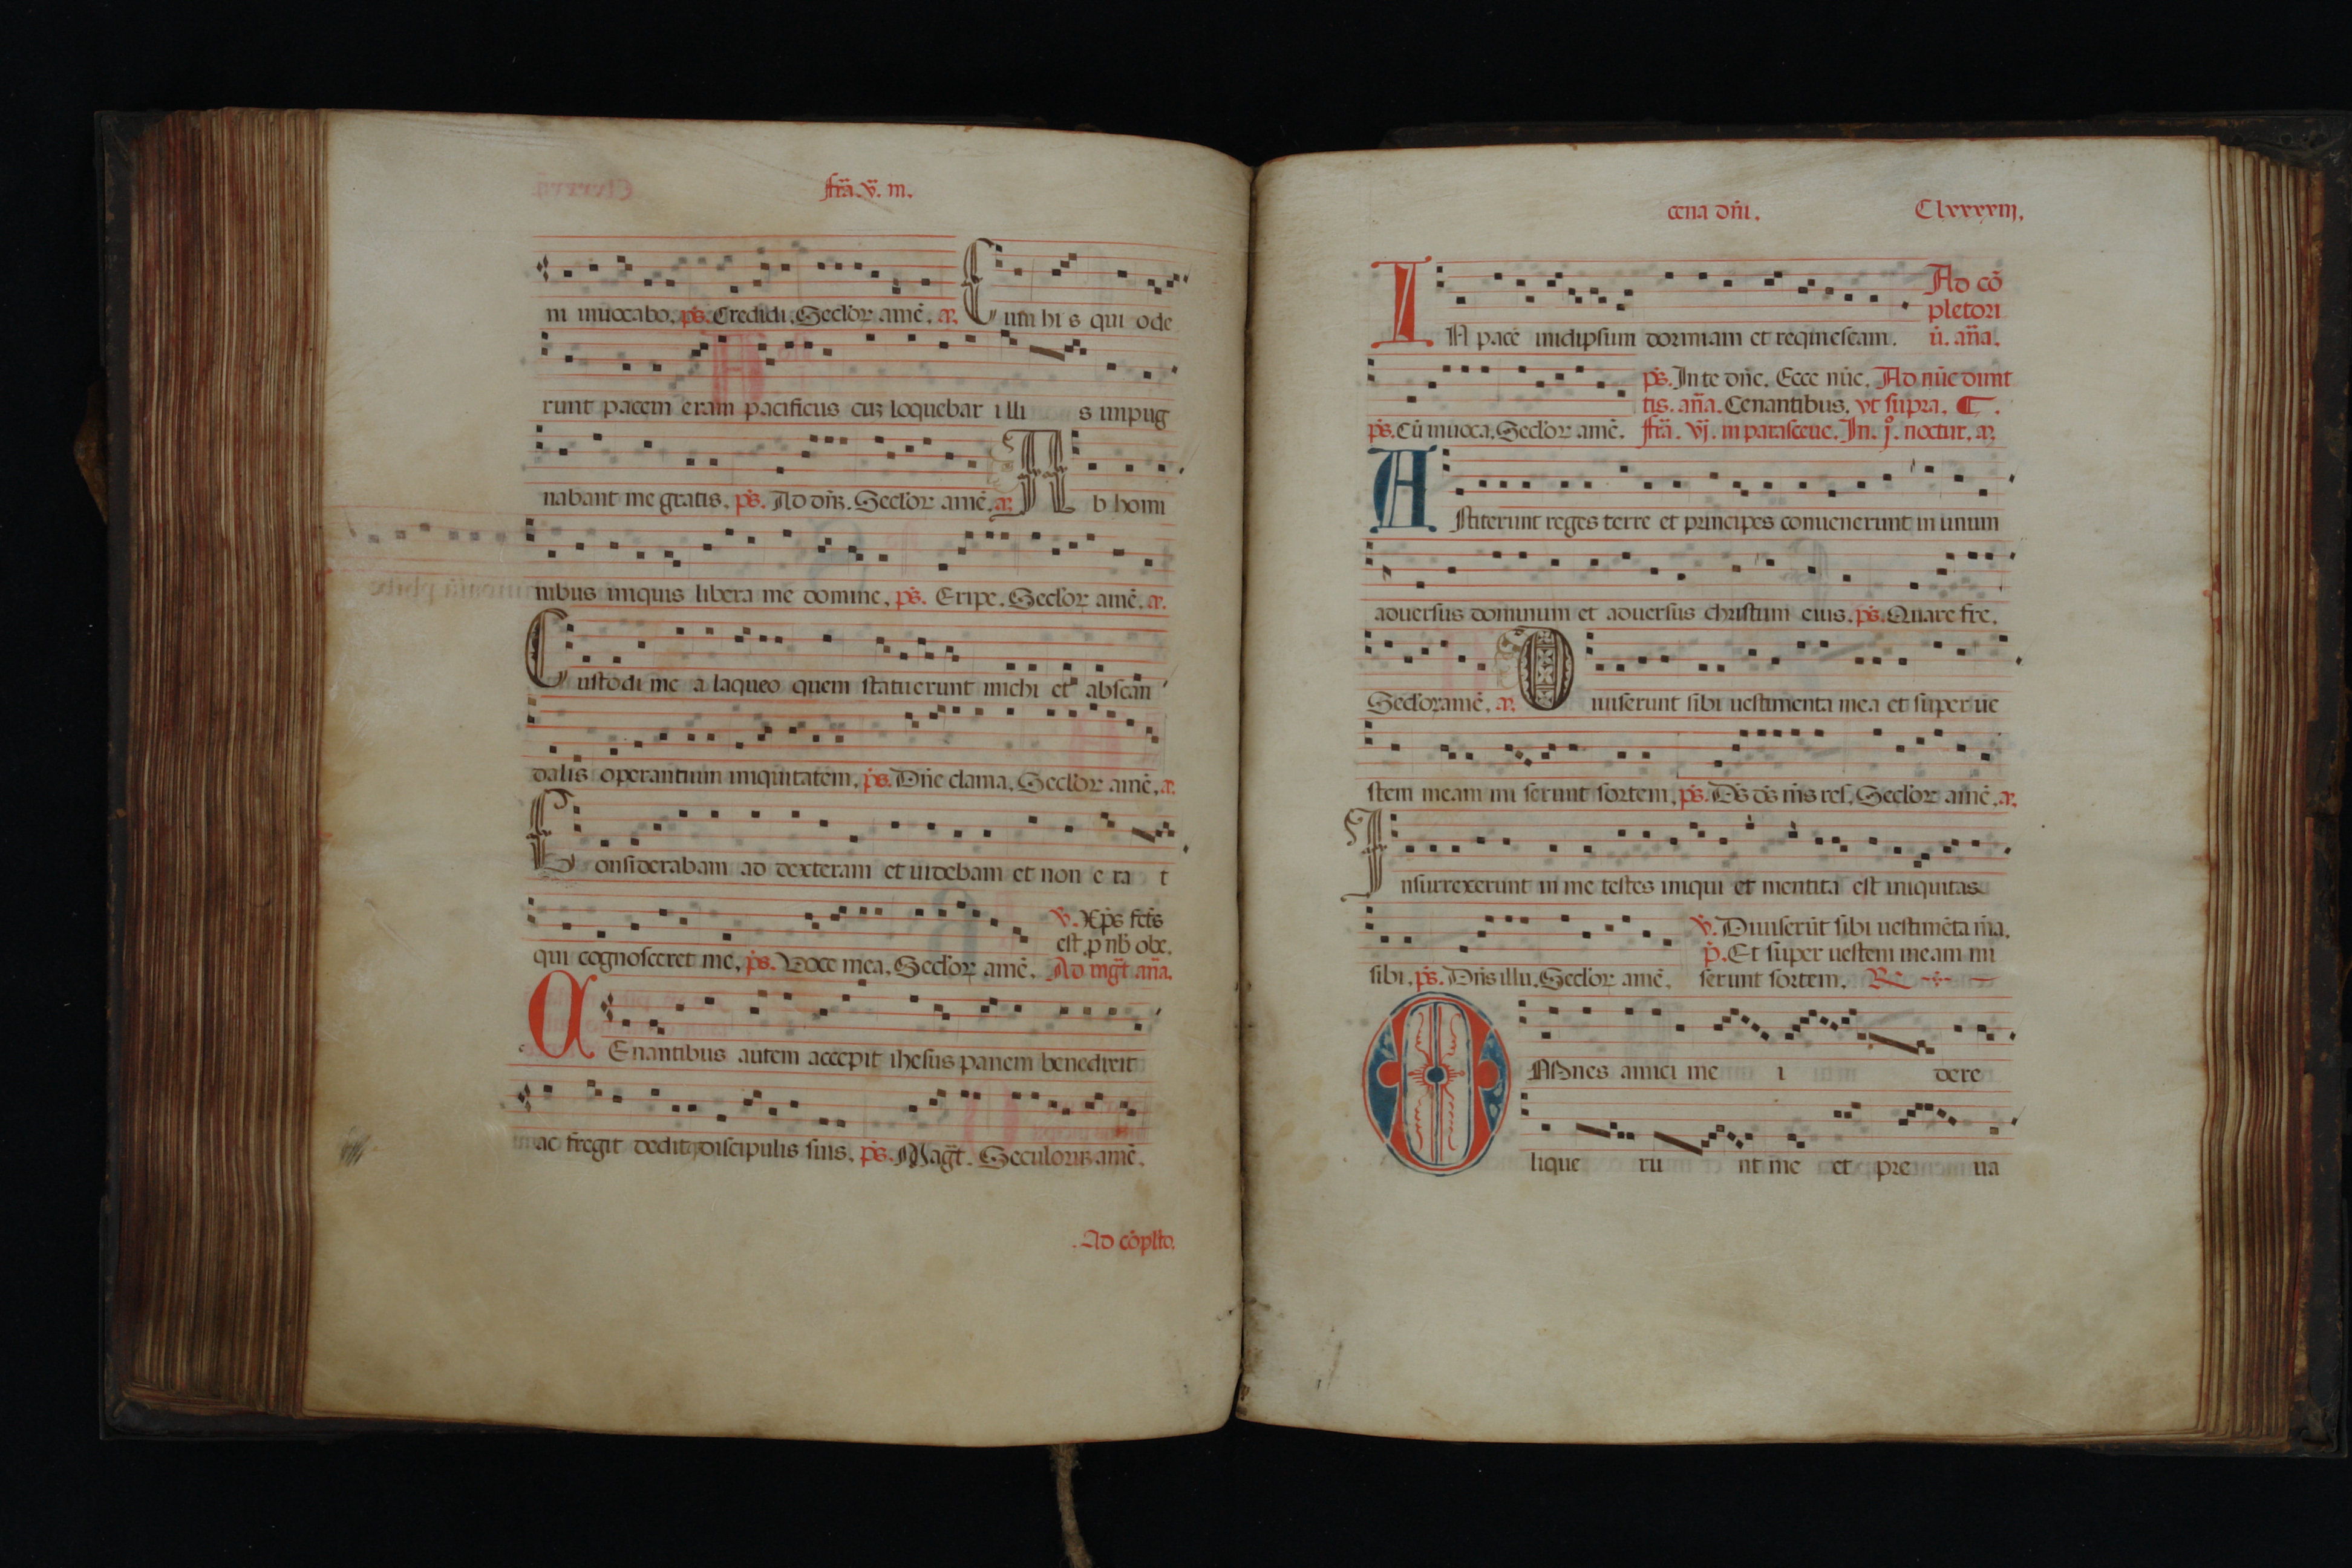 fr̄a. v̄. in.
ni inuocabo. ps̄. Credidi. Secl'oꝝ amē. a. C um hi s qui ode
runt pacem eram pacificus cuꝫ loquebar illi s inpug
nabant me gratis. ps̄. Ad dn̄ꝫ. Secl'oꝝ amē. a. A b homi
nibus iniquis libera me domine. ps̄. Eripe. Secl'oꝝ amē. a.
C ustodi me a laqueo quem statuerunt michi et abscan
dalis operantium iniquitatem. ps̄. Dn̄e clama. Secl'oꝝ amē. a.
C onsiderabam ad dexteram et uidebam et non e ra t
qui cognosceret me. ps̄. Voce mea. Secl'oꝝ amē.
v̄. Xp̄s fc̄s
est. p nb̄ obe.
Ad mḡt an̄a.
C Enantibus autem accepit ihesus panem benedixit
ac fregit deditqꝫ discipulis suis. ps̄. Magt̄. Seculoruꝫ amē.
Ad cōplto.
cena dn̄i. Clxxxxiij.
I N pacē inidipsum dormiam et requiescam.
Ad cō
pletori
ū. an̄a.
ps̄. Cū inuoca. Secl'oꝝ amē.
ps̄. In te dn̄e. Ecce nūc. Ad nūc dimit
tis. an̄a. Cenantibus. vt supra. ¶.
fr̄a. vj. in parasceue. In. jº. noctur. a.
A stiterunt reges terre et principes conuenerunt in unum
aduersus dominum et aduersus christum eius. ps̄. Quare fre.
Secl'oꝝ amē. a. D iuiserunt sibi uestimenta mea et super ue
stem meam mi serunt sortem. ps̄. Ds̄ ds̄ ms̄ res. Secl'oꝝ amē. a.
I nsurrexerunt in me testes iniqui et mentita est iniquitas
sibi. ps̄. Dn̄s illu. Secl'oꝝ amē.
v̄. Diuiserūt sibi uestimēta m̄a.
p̄. Et super uestem meam mi
serunt sortem. R̄
O Mnes amici me i dere
lique ru nt me et pre ua